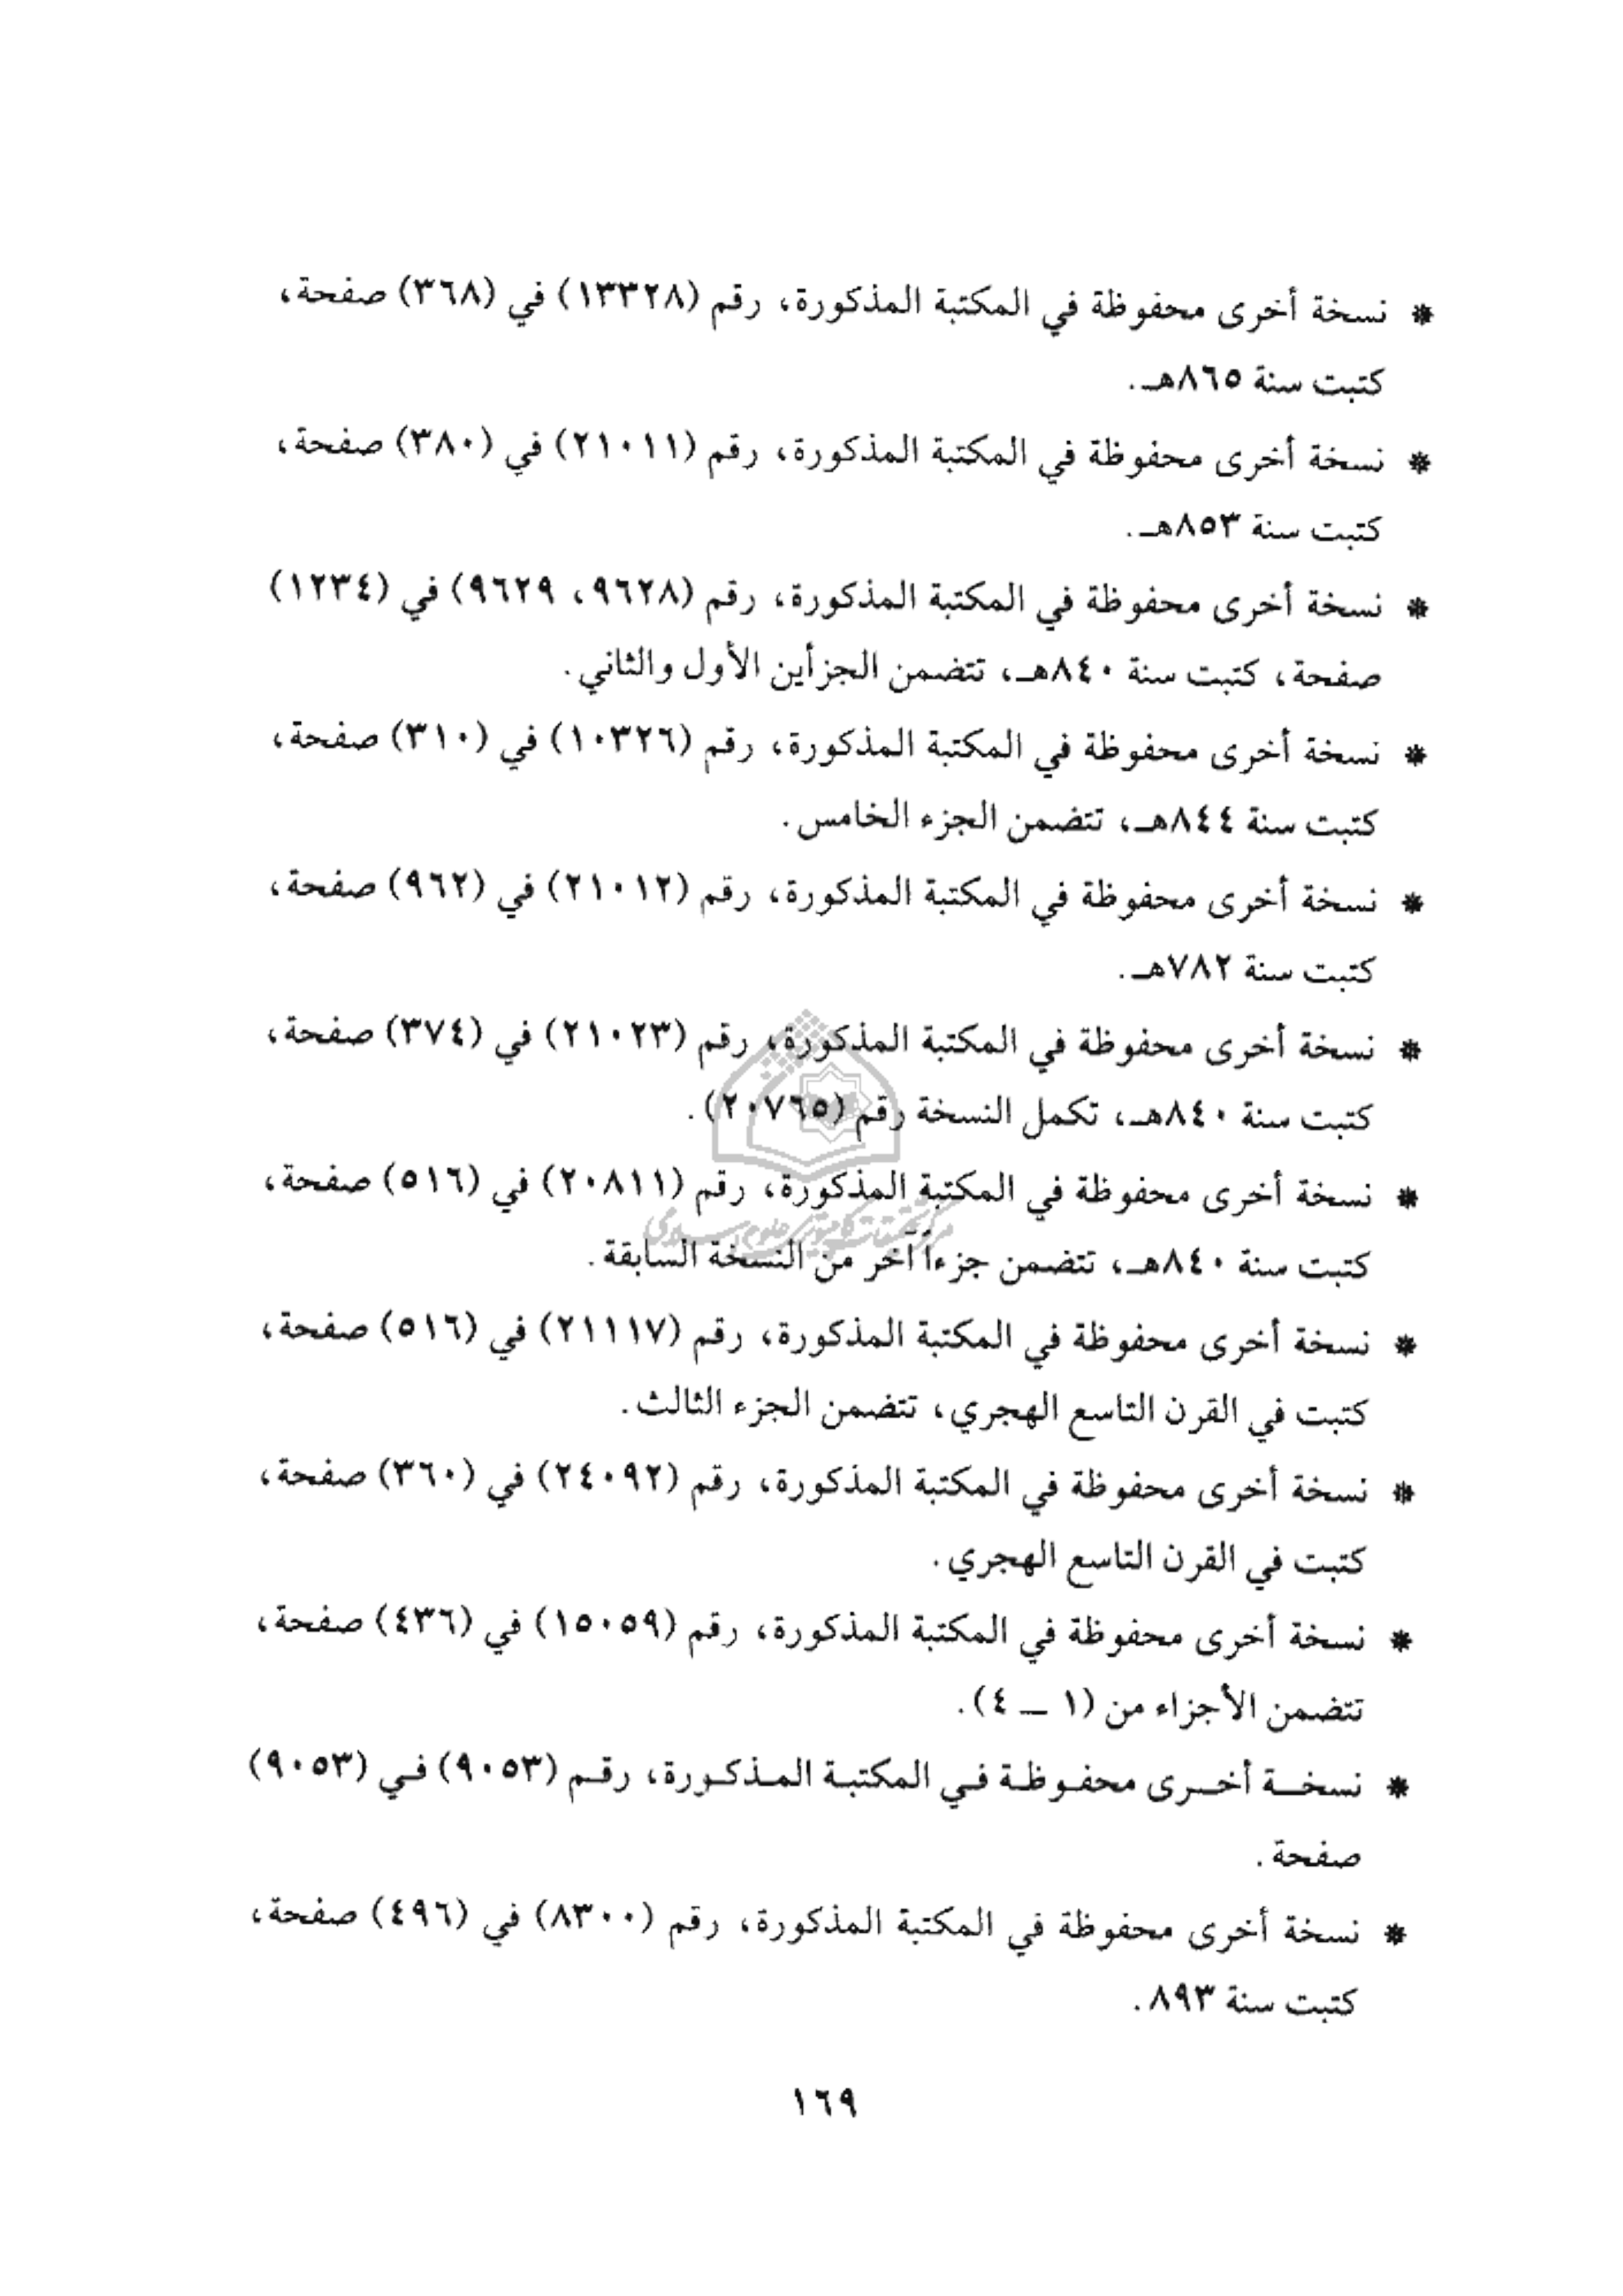 * نسخة أخرى محفوظة في المكتبة المذكورة، رقم (١٣٣٢٨) في (٣٦٨) صفحة،
كتبت سنة ٨٦٥هـ.
* نسخة أخرى محفوظة في المكتبة المذكورة، رقم (٢١٠١١) في (٣٨٠) صفحة،
كتبت سنة ٨٥٣هـ.
* نسخة أخرى محفوظة في المكتبة المذكورة، رقم (٩٦٢٨، ٩٦٢٩) في (١٢٣٤)
صفحة، كتبت سنة ٨٤٠هـ، تتضمن الجزأين الأول والثاني.
* نسخة أخرى محفوظة في المكتبة المذكورة، رقم (١٠٣٢٦) في (٣١٠) صفحة،
كتبت سنة ٨٤٤هـ، تتضمن الجزء الخامس.
* نسخة أخرى محفوظة في المكتبة المذكورة، رقم (٢١٠١٢) في (٩٦٢) صفحة،
كتبت سنة ٧٨٢هـ.
* نسخة أخرى محفوظة في المكتبة المذكورة، رقم (٢١٠٢٣) في (٣٧٤) صفحة،
كتبت سنة ٨٤٠هـ، تكمل النسخة رقم (٢٠٧٦٥).
* نسخة أخرى محفوظة في المكتبة المذكورة، رقم (٢٠٨١١) في (٥١٦) صفحة،
كتبت سنة ٨٤٠هـ، تتضمن جزءاً آخر من النسخة السابقة.
* نسخة أخرى محفوظة في المكتبة المذكورة، رقم (٢١١١٧) في (٥١٦) صفحة،
كتبت في القرن التاسع الهجري، تتضمن الجزء الثالث.
* نسخة أخرى محفوظة في المكتبة المذكورة، رقم (٢٤٠٩٢) في (٣٦٠) صفحة،
كتبت في القرن التاسع الهجري.
* نسخة أخرى محفوظة في المكتبة المذكورة، رقم (١٥٠٥٩) في (٤٣٦) صفحة،
تتضمن الأجزاء من (١ ــ ٤).
* نسخة أخرى محفوظة في المكتبة المذكورة، رقم (٩٠٥٣) في (٩٠٥٣)
صفحة.
* نسخة أخرى محفوظة في المكتبة المذكورة، رقم (٨٣٠٠) في (٤٩٦) صفحة،
كتبت سنة ٨٩٣.
١٦٩